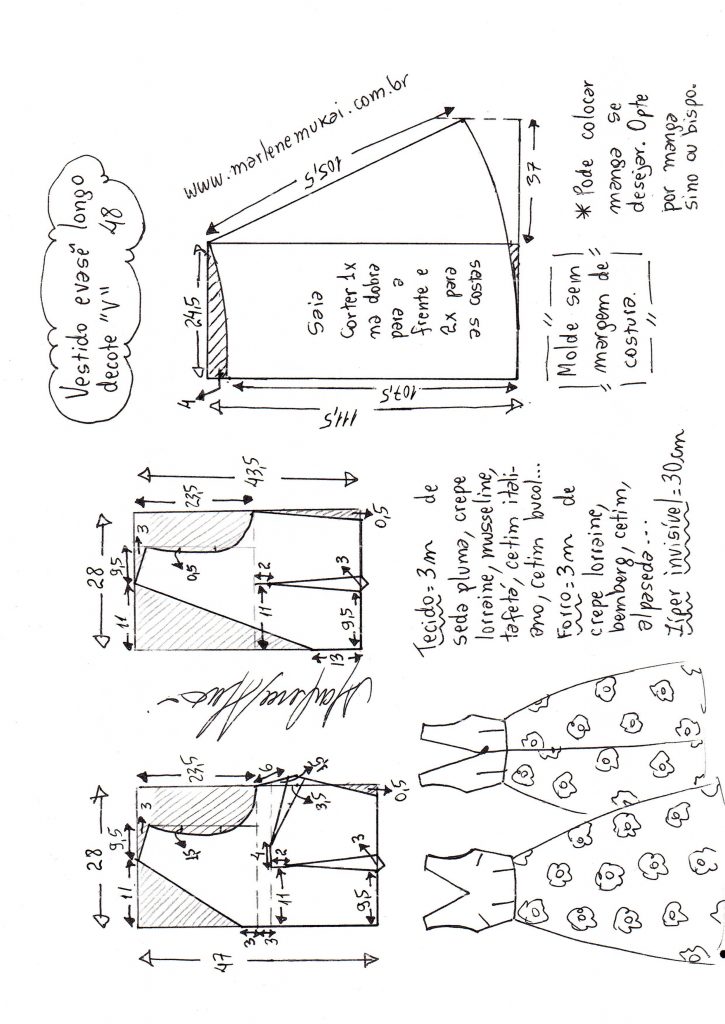 Vestido evasê longo
decote "V" 48
www.marlenemukai.com.br
105,5
24,5
4
107,5
111,5
37
Saia
Corter 1x
na dobra
para a
frente e
2x para
as costas
* Pode colocar
manga se
desejar. Opte
por manga
sino ou bispo.
"Molde sem
margem de
costura."
28
11
9,5
3
23,5
43,5
0,5
11
2
9,5
3
13
0,5
28
11
9,5
3
23,5
47
1,5
6
3,5
4
2
11
9,5
3
3
3
0,5
Tecido = 3m de
seda pluma, crepe
lorraine, musseline,
tafetá, cetim itali-
ano, cetim bucol...
Forro = 3m de
crepe lorraine,
bemberg, cetim,
alpaseda...
Zíper invisível = 30cm